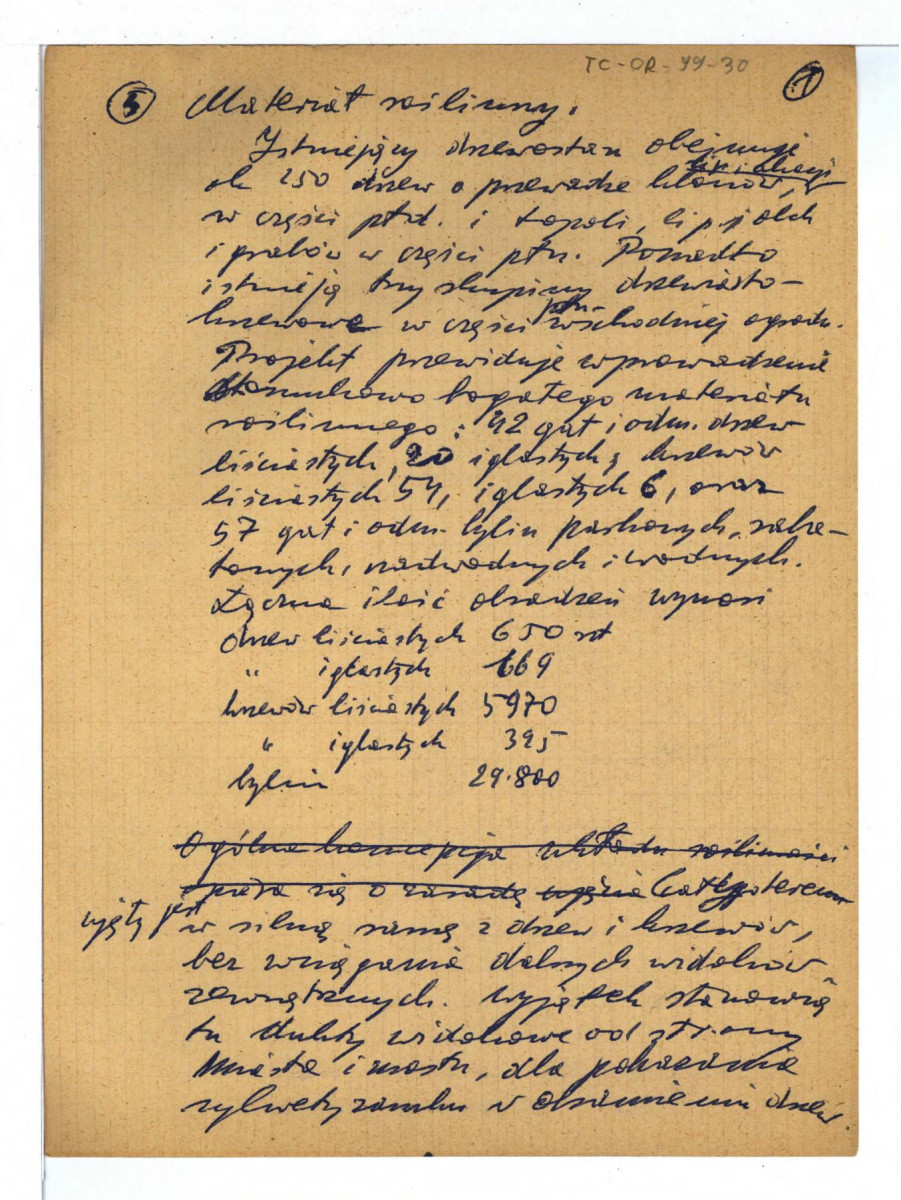 TC-OR-99-30
5 Materiał roślinny. 1
Istniejący drzewostan obejmuje
ok 250 drzew o przewadze klonów, lip i akacji
w części płd. i topoli, lip, olch
i grabów w części płn. Ponadto
istnieją trzy skupiny drzewiasto-
krzewowe w części płn-wschodniej ogrodu.
Projekt przewiduje wprowadzenie
stosunkowo bogatego materiału
roślinnego: 42 gat i odm. drzew
liściastych, 20 iglastych, krzewów
liściastych 54, iglastych 6, oraz
57 gat i odm. bylin parkowych, raba-
towych, nadwodnych i wodnych.
Łączna ilość obsadzeń wynosi
drzew liściastych 650 szt
" iglastych 669
krzewów liściastych 5970
" iglastych 395
bylin 29.800
Ogólna koncepcja układu roślinności
opiera się o zasadę ujęcia Cały teren
ujęty jest w silną ramę z drzew i krzewów,
bez wciągania dalszych widoków
zewnętrznych. Wyjątek stanowią
tu dukty widokowe od strony
miasta i mostu, dla pokazania
sylwety zamku w obramieniu drzew.